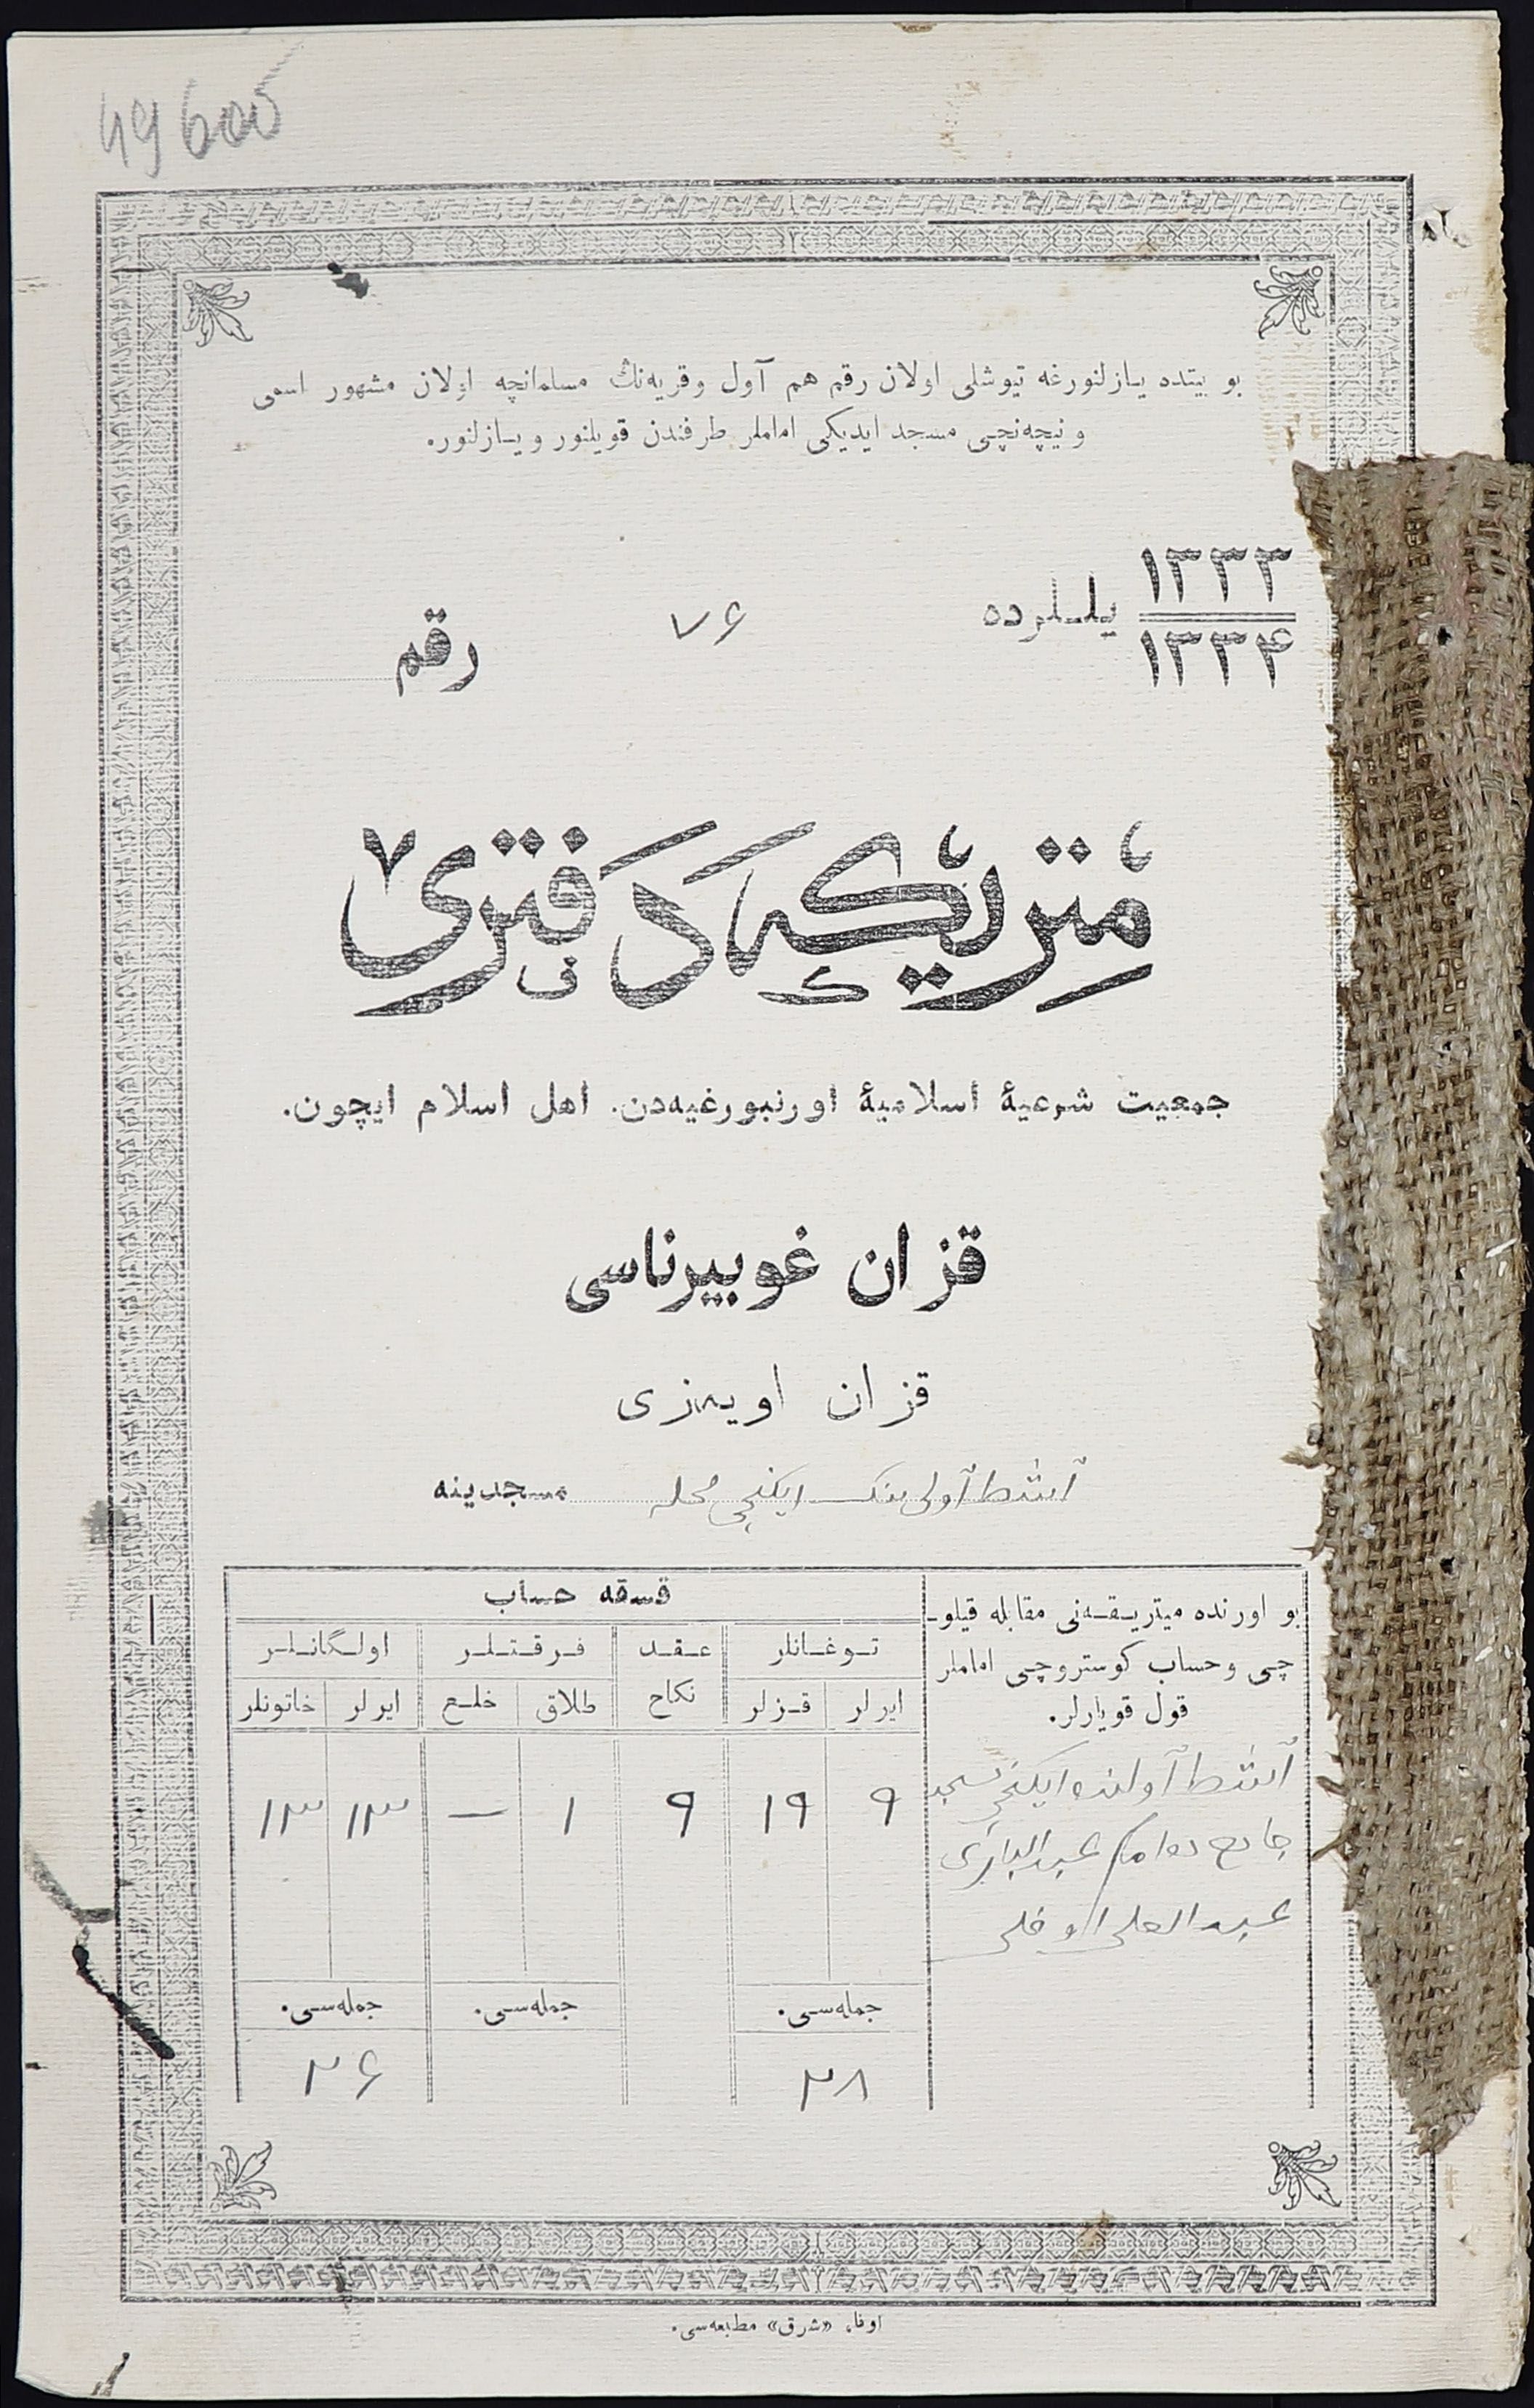 49600
بو بیتده یازلنورغه تیوشلی اولان رقم هم آول وقریه‌نڭ مسلمانچه اولان مشهور اسمی
ونیچه‌نچی مسجد ایدیکی اماملر طرفندن قویلنور ویازلنور.
۱۳۳۳
۱۳۳۴
یللرده
۷۶
رقم
متریكه دفتری
جمعیت شرعیۀ اسلامیۀ اورنبورغیه‌دن. اهل اسلام ایچون.
قزان غوبیرناسی
قزان اویه‌زی
آول‌ینک ایکنچی محله مسجدینه
بو اورنده میتریقه‌نی مقابله قیلو-
چی وحساب کوستروچی اماملر
قول قویارلر.
آولنده ایکنچی مسجد
جامع امام عبد
عبد العلی
قسقه حساب
توغانلر
عقد
نکاح
فرقتلر
اولگانلر
ایرلر
قزلر
طلاق
خلع
ایرلر
خاتونلر
۹
۱۹
۹
۱
—
۱۳
۱۳
جمله‌سی.
جمله‌سی.
جمله‌سی.
۲۸
۲۶
اوفا، «شرق» مطبعه‌سی.